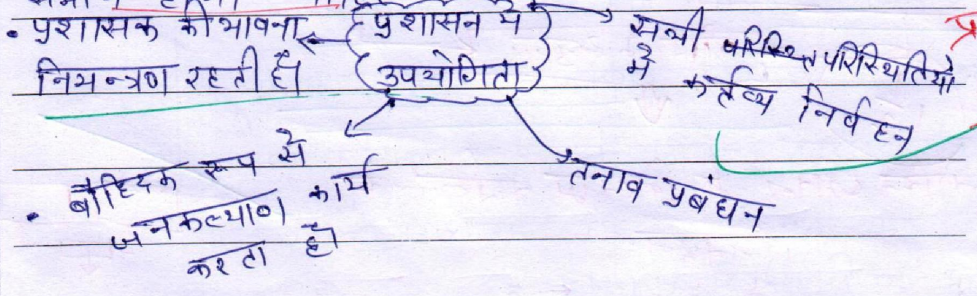 • प्रशासक की भावना
नियन्त्रण रहती है।
प्रशासन मे
उपयोगिता
सभी परिस्थितियो
मे कर्तव्य निर्वहन
• बौद्धिक रूप से
जनकल्याण कार्य
करता है।
तनाव प्रबंधन